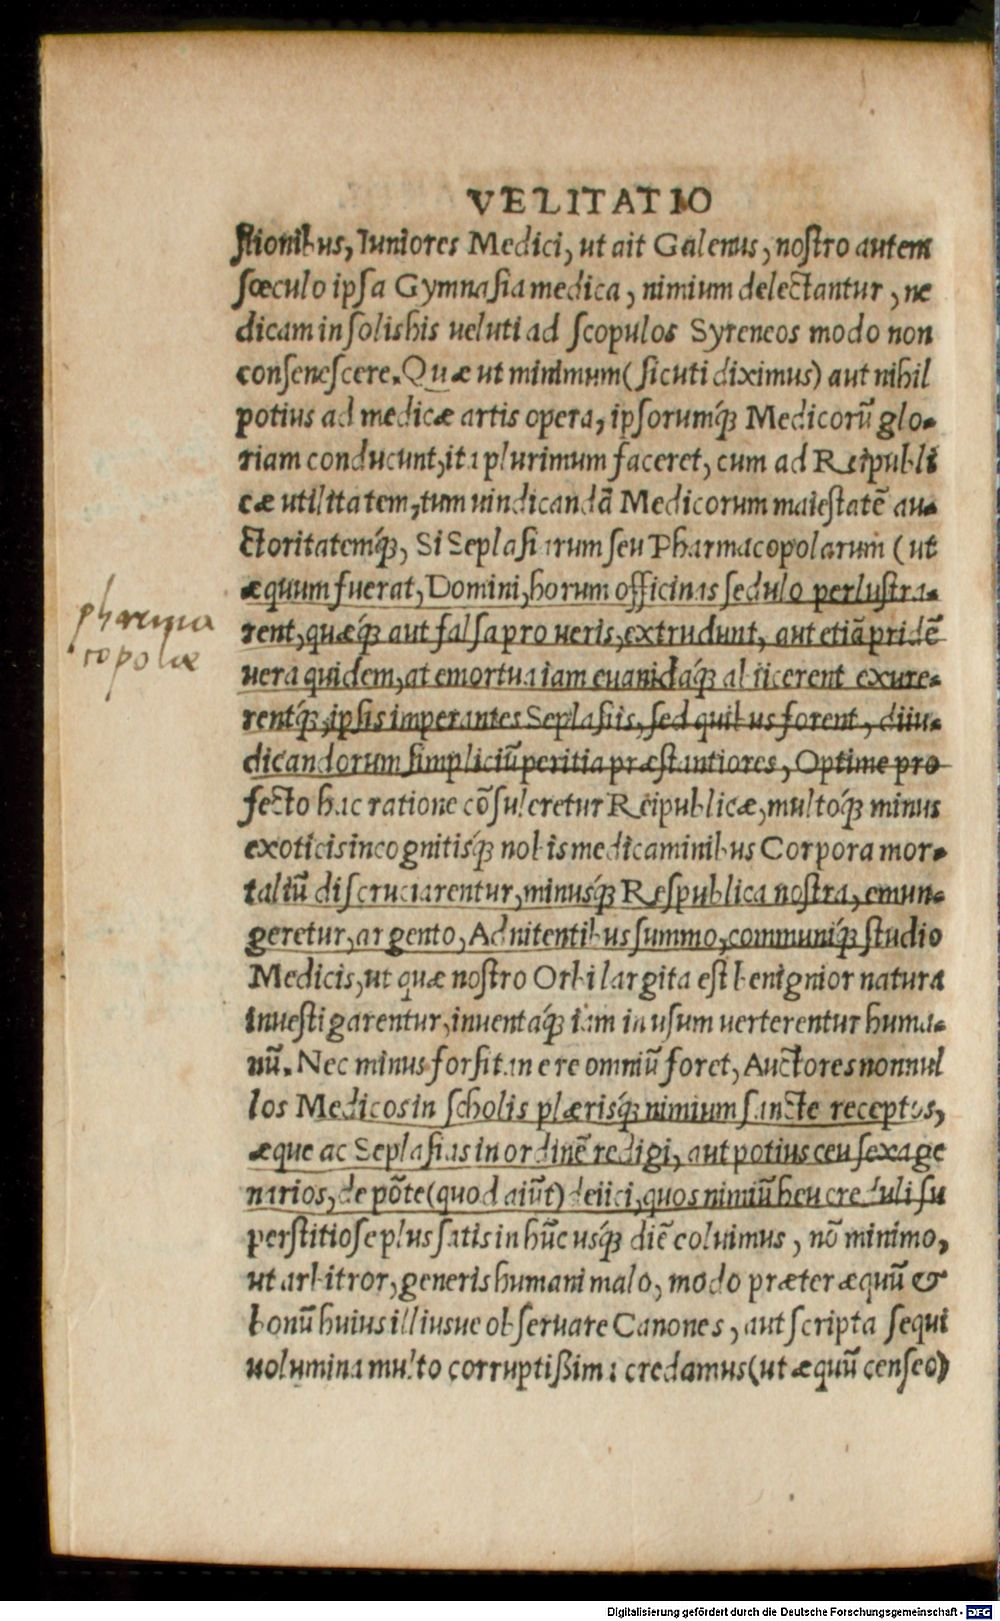 VELITATIO
ſtionibus, Iuniores Medici, ut ait Galenus, noſtro autem
ſœculo ipſa Gymnaſia medica, nimium delectantur, ne
dicam in ſolis his ueluti ad ſcopulos Syreneos modo non
conſeneſcere. Quæ ut minimum (ſicuti diximus) aut nihil
potius ad medicæ artis opera, ipſorumq́ꝫ Medicorũ glo-
riam conducunt, ita plurimum faceret, cum ad Reipubli
cæ utilitatem, tum uindicandã Medicorum maieſtatẽ au-
ctoritatemq́ꝫ, Si Seplaſiarum ſeu Pharmacopolarum (ut
æquum fuerat, Domini, horum officinas ſedulo perluſtra-
rent, quæq́ꝫ aut falſa pro ueris, extrudunt, aut etiã pridẽ
uera quidem, at emortua iam euanidaq́ꝫ abiicerent exure-
rentq́ꝫ, ipſis imperantes Seplaſiis, ſed quibus forent, diiu-
dicandorum ſimpliciũ peritia præſtantiores, Optime pro
fecto hac ratione cõſuleretur Reipublicæ, multoq́ꝫ minus
exoticis incognitisq́ꝫ nobis medicaminibus Corpora mor-
taliũ diſcruciarentur, minusq́ꝫ Reſpublica noſtra, emun-
geretur, argento, Adnitentibus ſummo, communiq́ꝫ ſtudio
Medicis, ut quæ noſtro Orbi largita eſt benignior natura
inueſtigarentur, inuentaq́ꝫ iam in uſum uerterentur huma-
nũ. Nec minus forſitan e re omniũ foret, Auctores nonnul
los Medicos in ſcholis plæriſq́ꝫ nimium ſancte receptos,
æque ac Seplaſias in ordinẽ redigi, aut potius ceu ſexage
narios, de põte (quod aiũt) deiici, quos nimiũ heu creduli ſu
perſtitioſe plus ſatis in hũc uſq́ꝫ diẽ coluimus, nõ minimo,
ut arbitror, generis humani malo, modo præter æquũ &
bonũ huius illiusue obſeruare Canones, aut ſcripta ſequi
uolumina multo corruptißimi credamus (ut æquũ cenſeo)
pharma
copolæ
Digitalisierung gefördert durch die Deutsche Forschungsgemeinschaft - DFG